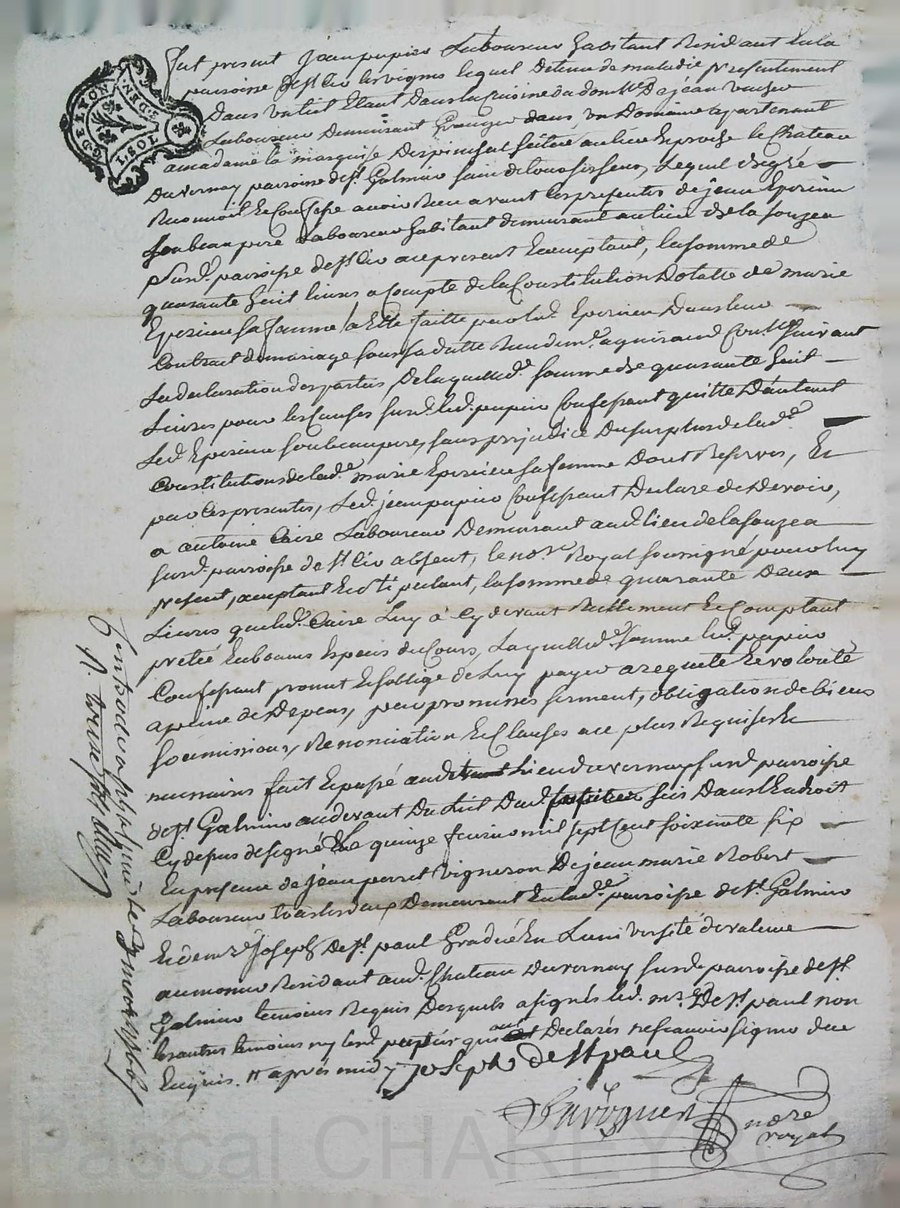 GEN. DE LYON
1 SOL
Fut présent Jean papier Laboureur habitant Residant en la
paroisse de st Cir les vignes lequel detenu de maladie presentement
dans un lit Etant dans la cuisine du dom.le de jean
Laboureur Demeurant Granger dans un Domaine apartenant
a madame la marquise Despinchal scitué au lieu le chateau
Duvernay paroisse de st. Galmier sain de tous ses sens, Lequel de gré
Reconnoit Et Confesse avoir Reçu avant ces presentes de jean Epercieu
son beau pere Laboureur habitant demeurant au lieu de la fouzea
Susd. paroisse de st Cir ace present Et acceptant, la somme de
quarante huit livres a Compte de la Constitution Dotalle de marie
Epercieu sa famme, a Elle faitte par led. Epercieu Dans leur
Contract de mariage sous sa datte Reçu mr. aguiraud Con.er suivant
La declaration des parties, De laquelle d. somme de quarante huit
Livres pour les Causes susd. led. papier Confessant quitte D'autant
Led. Epercieu son beaupere, sans prejudice Du surplus de lad.
Constitution de lad. marie Epercieu sa famme Dont Reserves, Et
par Ces presentes, Led. jean papier Confessant Declare de Devoir,
a antoine Caire Laboureur Demeurant aud. lieu de la fouzea
susd. paroisse de st. Cir absent, le no.re Royal soussigné pour luy
present, acceptant Et stipulant, la somme de quarante Deux
Livres que led. Caire Luy a Cy devant Réellement Et Comptant
preté En bonnes Especes du Cours, Laquelle d. somme led. papier
Confessant promet Et s'oblige de Luy payer a requete Et volonté
a peine de Depens, par promesses serment, obligation de biens
soumissions, Renonciation Et Clauses ace plus Requises Et
necessaires fait Et passé aud. Lieu duvernay susd. paroisse
de st. Galmier au devant Du Lit Dud. papier scis Dans l'Endroit
Cy dessus designé Le quinze fevrier mil sept Cent soixante six
En presence de jean perret vigneron De jean marie Robert
Laboureur tous les deux Demeurant En lad. paroisse de st. Galmier
Et de m.re joseph De st. paul Gradué En L'université de valence
aumonier Residant aud. Chateau Duvernay susd. paroisse de st.
Galmier temoins Requis Desquels a signés led. mr. De st. paul non
les autres temoins ny led. papier qui ont Declarés ne scavoir signer de ce
Enquis. # après midy joseph de st paul
no.re
royal